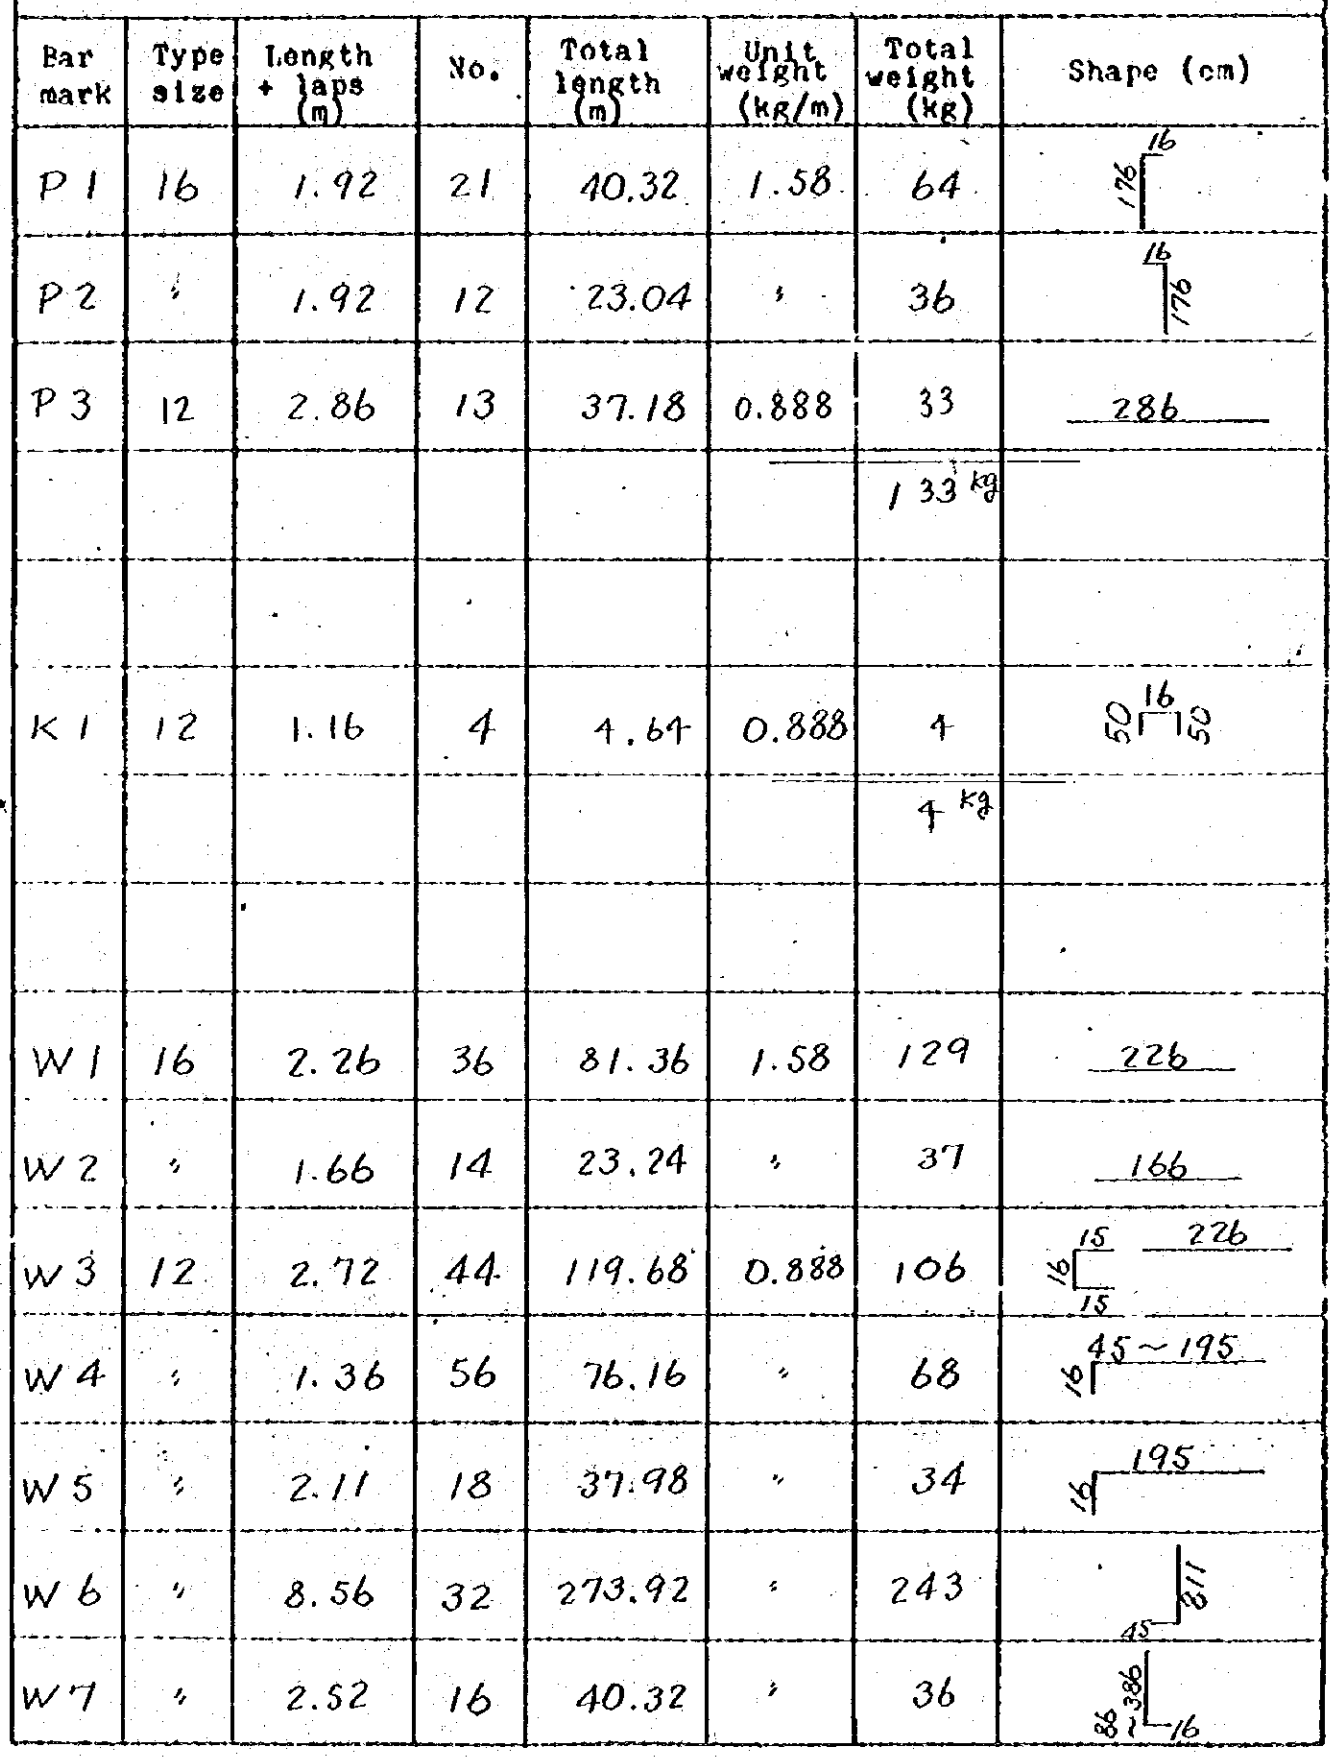 Bar mark Type size Length + laps (m) No. Total length (m) Unit weight (kg/m) Total weight (kg) Shape (cm)
P 1 16 1.92 21 40.32 1.58 64 16 176
P 2 〃 1.92 12 23.04 〃 36 16 176
P 3 12 2.86 13 37.18 0.888 33 286
133 kg
K 1 12 1.16 4 4.64 0.888 4 50 16 50
4 kg
W 1 16 2.26 36 81.36 1.58 129 226
W 2 〃 1.66 14 23.24 〃 37 166
W 3 12 2.72 44 119.68 0.888 106 16 15 15 226
W 4 〃 1.36 56 76.16 〃 68 16 45~195
W 5 〃 2.11 18 37.98 〃 34 16 195
W 6 〃 8.56 32 273.92 〃 243 45 811
W 7 〃 2.52 16 40.32 〃 36 86~386 16